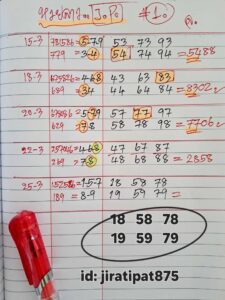 หวยลาว.. J.P. #1.
15-3 = 579 53 73 93
779 = 3-4 54 74 94 = 5488
18-3 = 468 43 63 83
689 = 34 44 64 84 = 8302
20-3 = 579 57 77 97
629 = 78 58 78 98 = 7706
22-3 = 468 47 67 87
269 = 78 48 68 88 = 2858
25-3 = 15-7 18 58 78
189 = 8-9 19 59 79 =
18 58 78
19 59 79
id: jiratipat875